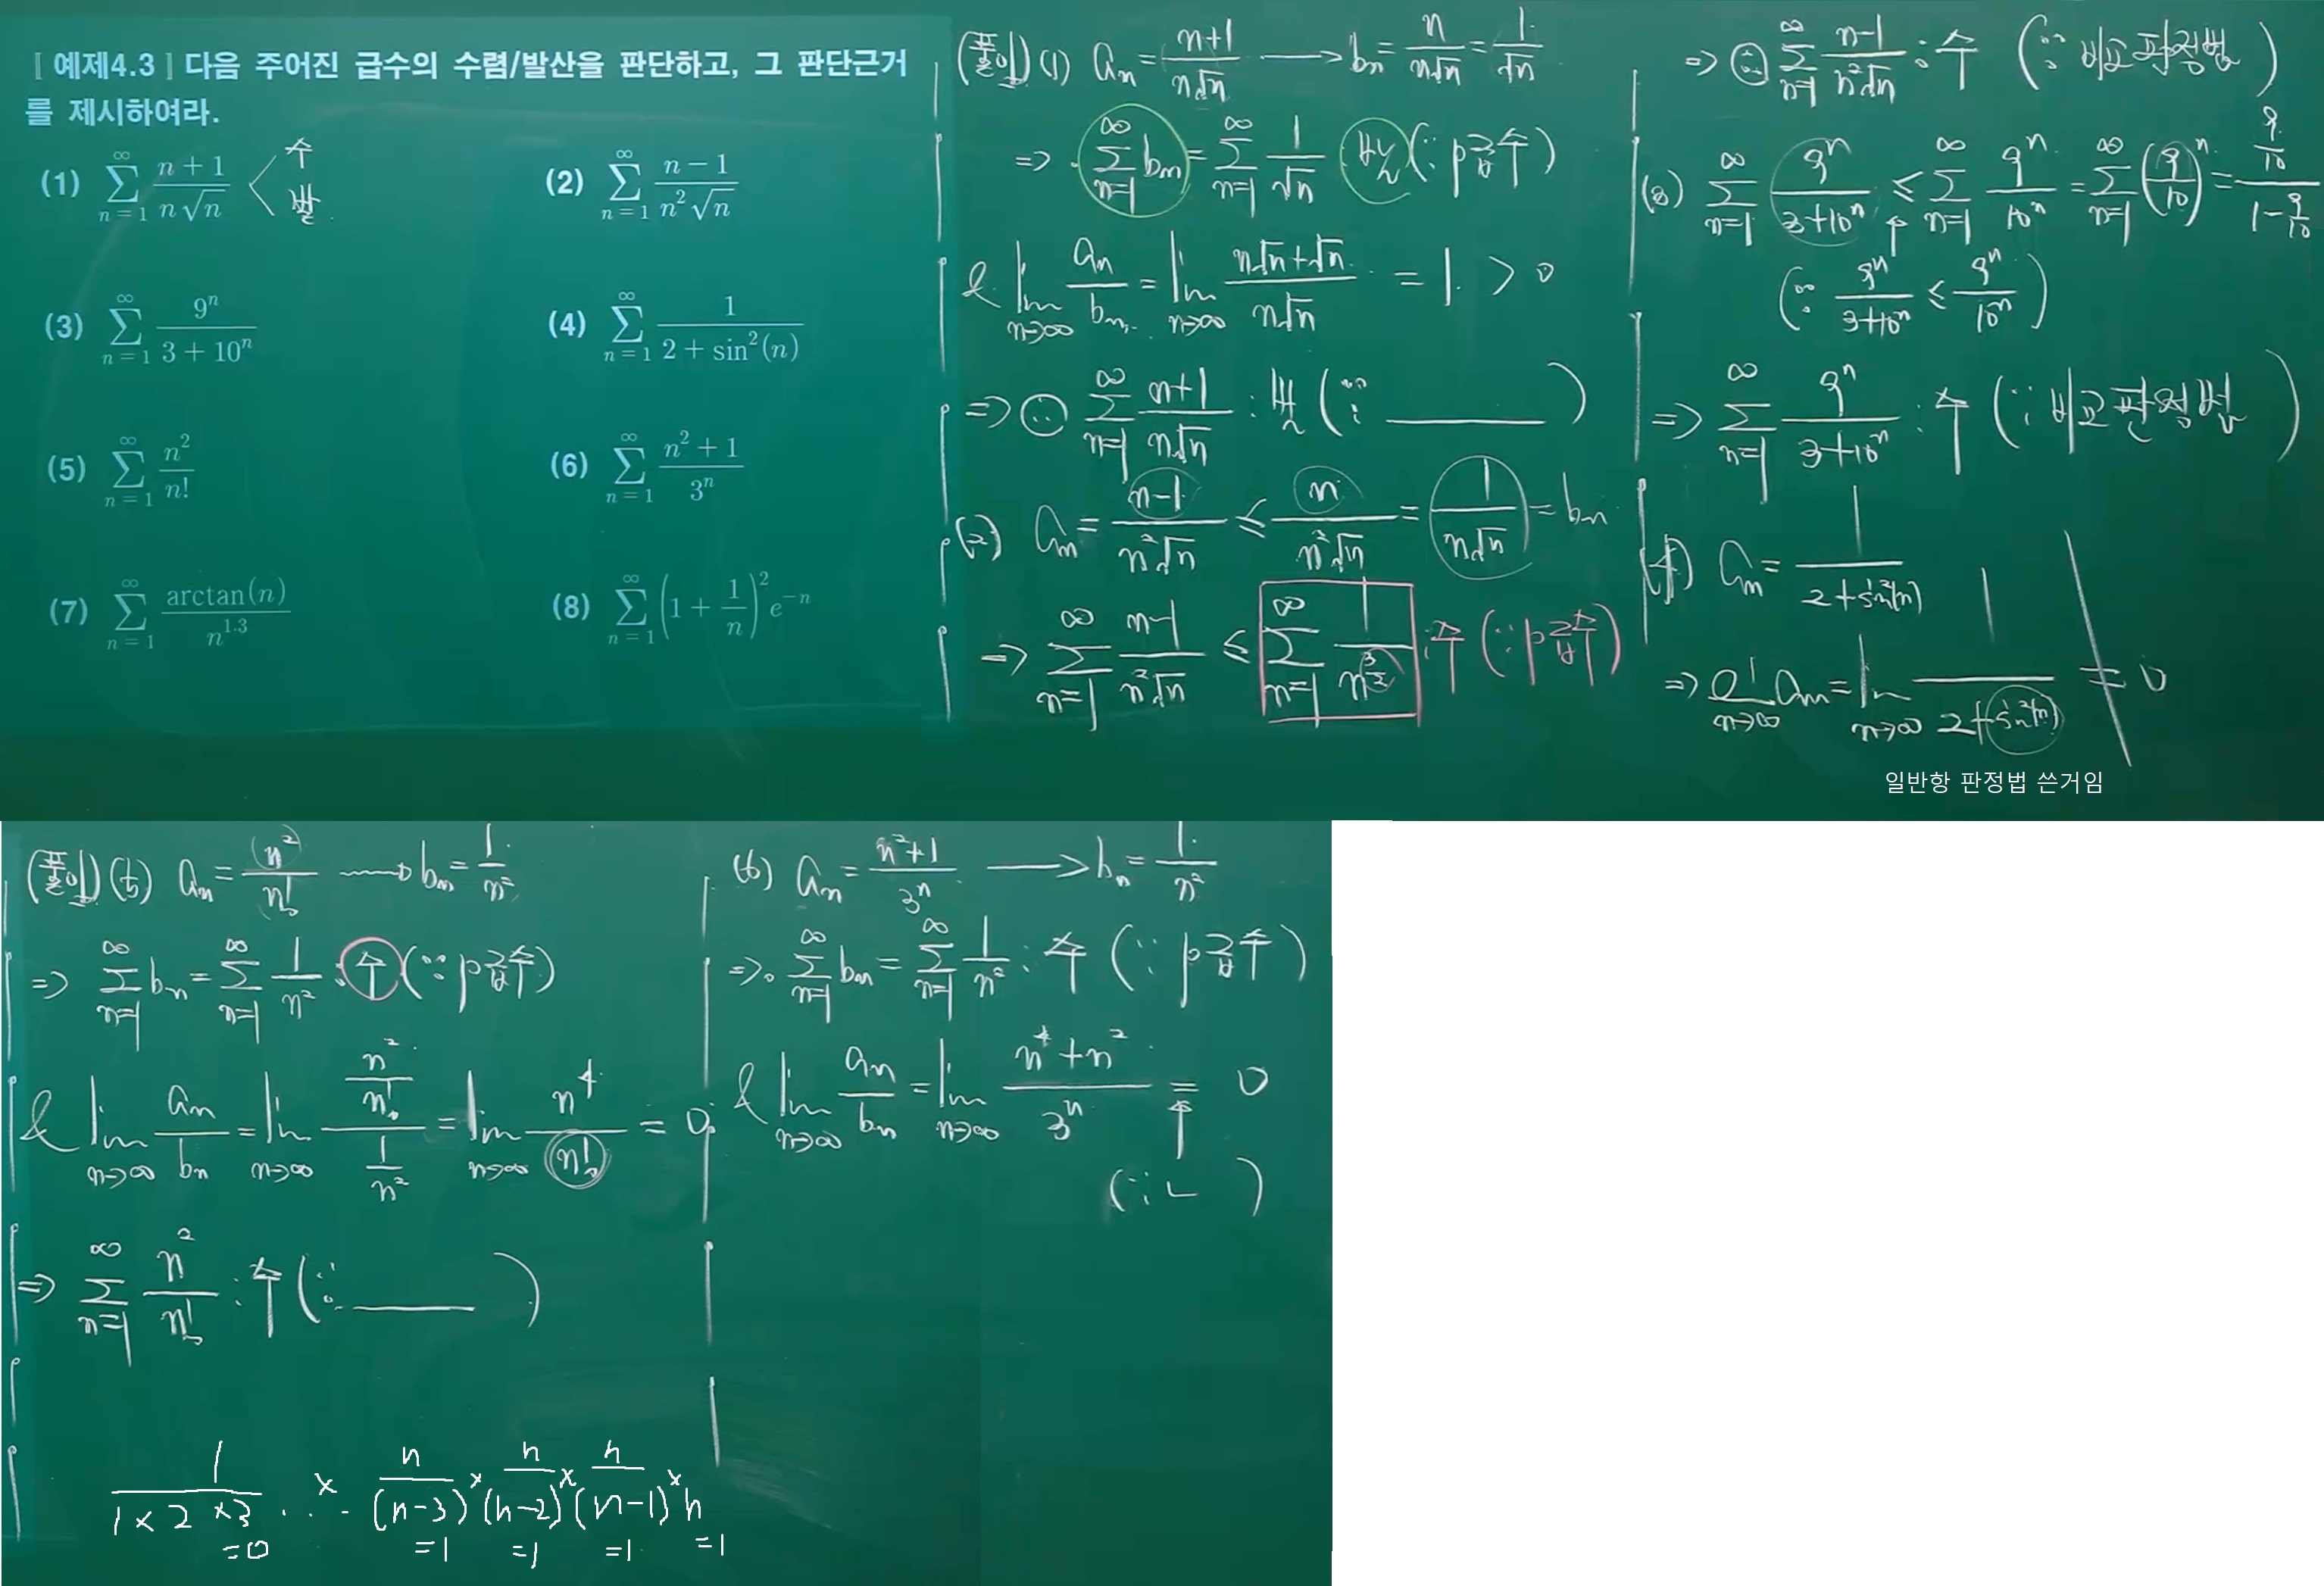 [ 예제4.3 ] 다음 주어진 급수의 수렴/발산을 판단하고, 그 판단근거
를 제시하여라.
(1) ∑_{n=1}^{∞} (n+1)/(n√n) < 수 발
(2) ∑_{n=1}^{∞} (n-1)/(n²√n)
(3) ∑_{n=1}^{∞} 9ⁿ/(3+10ⁿ)
(4) ∑_{n=1}^{∞} 1/(2+sin²(n))
(5) ∑_{n=1}^{∞} n²/n!
(6) ∑_{n=1}^{∞} (n²+1)/3ⁿ
(7) ∑_{n=1}^{∞} arctan(n)/n^{1.3}
(8) ∑_{n=1}^{∞} (1+1/n)² e^{-n}
(풀이) (1) aₙ = (n+1)/(n√n) → bₙ = n/(n√n) = 1/√n
⇒ ∑_{n=1}^{∞} bₙ = ∑_{n=1}^{∞} 1/√n 발 (∵ p급수)
& lim_{n→∞} aₙ/bₙ = lim_{n→∞} (n√n+√n)/(n√n) = 1 > 0
⇒ ∴ ∑_{n=1}^{∞} (n+1)/(n√n) : 발 (∵ ______)
(2) aₙ = (n-1)/(n²√n) ≤ n/(n²√n) = 1/(n√n) = bₙ
⇒ ∑_{n=1}^{∞} (n-1)/(n²√n) ≤ ∑_{n=1}^{∞} 1/n^{3/2} : 수 (∵ p급수)
⇒ ∴ ∑_{n=1}^{∞} (n-1)/(n²√n) : 수 (∵ 비교판정법)
(3) ∑_{n=1}^{∞} 9ⁿ/(3+10ⁿ) ≤ ∑_{n=1}^{∞} 9ⁿ/10ⁿ = ∑_{n=1}^{∞} (9/10)ⁿ = (9/10)/(1-9/10)
(∵ 9ⁿ/(3+10ⁿ) ≤ 9ⁿ/10ⁿ)
⇒ ∑_{n=1}^{∞} 9ⁿ/(3+10ⁿ) : 수 (∵ 비교판정법)
(4) aₙ = 1/(2+sin²(n))
⇒ lim_{n→∞} aₙ = lim_{n→∞} 1/(2+sin²(n)) ≠ 0
일반항 판정법 쓴거임
(풀이) (5) aₙ = n²/n! → bₙ = 1/n²
⇒ ∑_{n=1}^{∞} bₙ = ∑_{n=1}^{∞} 1/n² : 수 (∵ p급수)
& lim_{n→∞} aₙ/bₙ = lim_{n→∞} (n²/n!)/(1/n²) = lim_{n→∞} n⁴/n! = 0
⇒ ∑_{n=1}^{∞} n²/n! : 수 (∵ ______)
1/(1×2×3) ... × n/(n-3) × n/(n-2) × n/(n-1) × n
=0 =1 =1 =1 =1
(6) aₙ = (n²+1)/3ⁿ → bₙ = 1/n²
⇒ ∑_{n=1}^{∞} bₙ = ∑_{n=1}^{∞} 1/n² : 수 (∵ p급수)
& lim_{n→∞} aₙ/bₙ = lim_{n→∞} (n⁴+n²)/3ⁿ = 0
(∵ L )